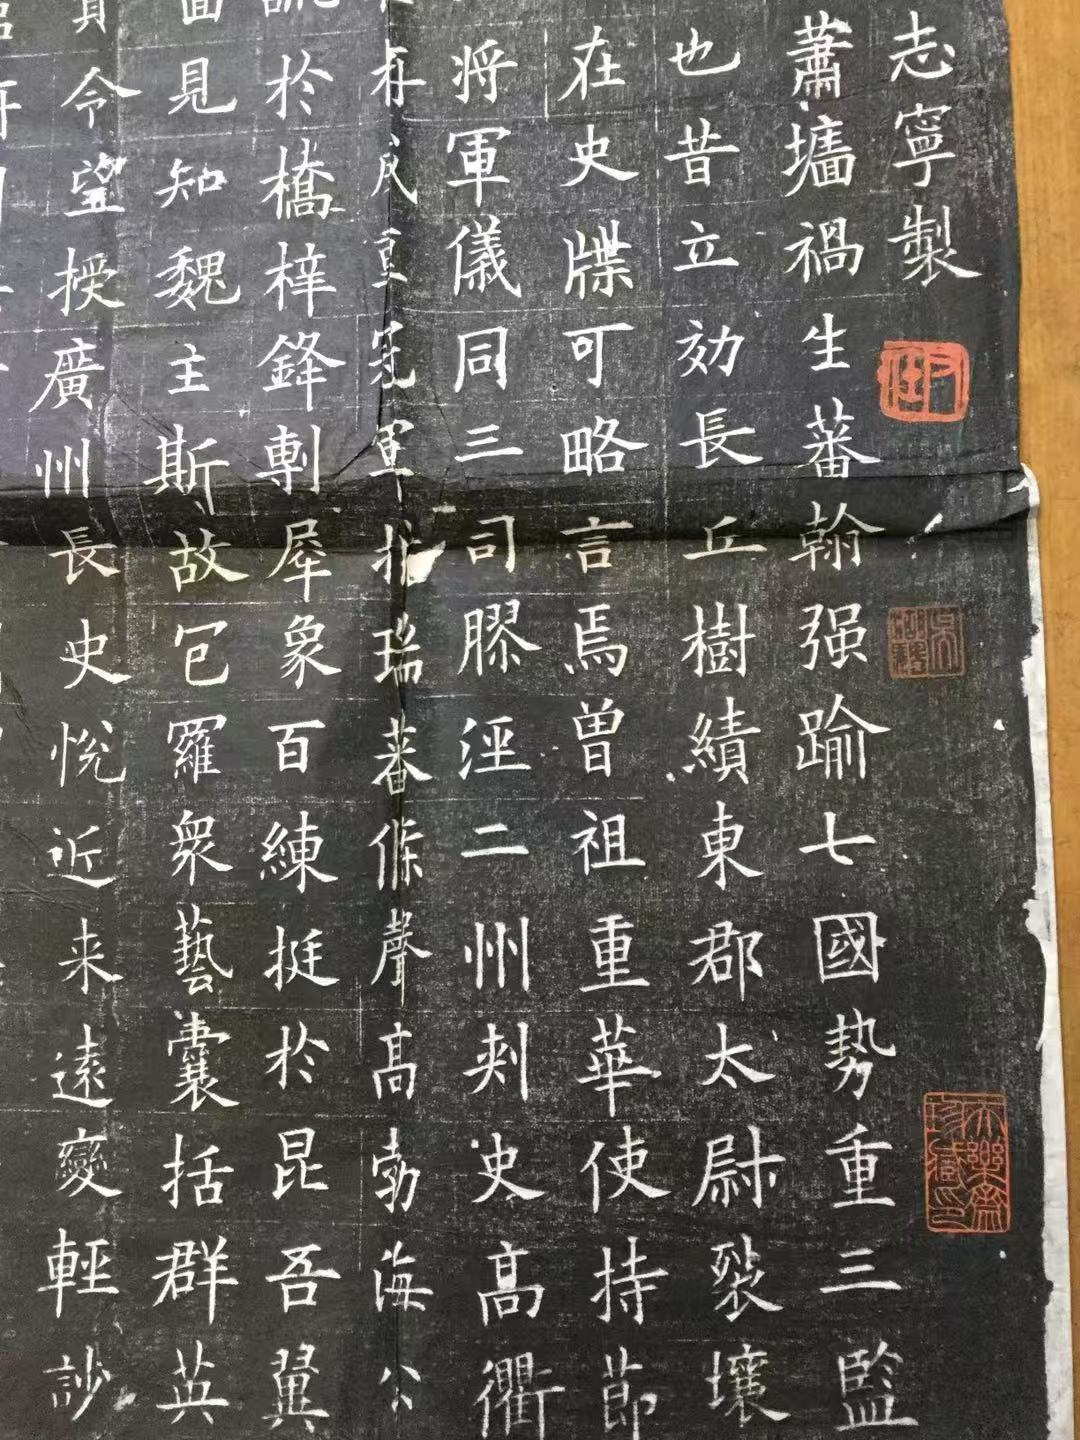 志寧製
蕭墻禍生蕃翰强踰七國勢重三監
也昔立効長丘樹績東郡太尉裂壤
在史牒可略言焉曾祖重華使持節
将軍儀同三司膠涇二州刾史高衢
冠軍抗瑞蕃條聲高勃海公
於橋梓鋒剸犀象百練挺於昆吾翼
見知魏主斯故包羅衆藝囊括群英
令望授廣州長史悅近来遠變輕訬